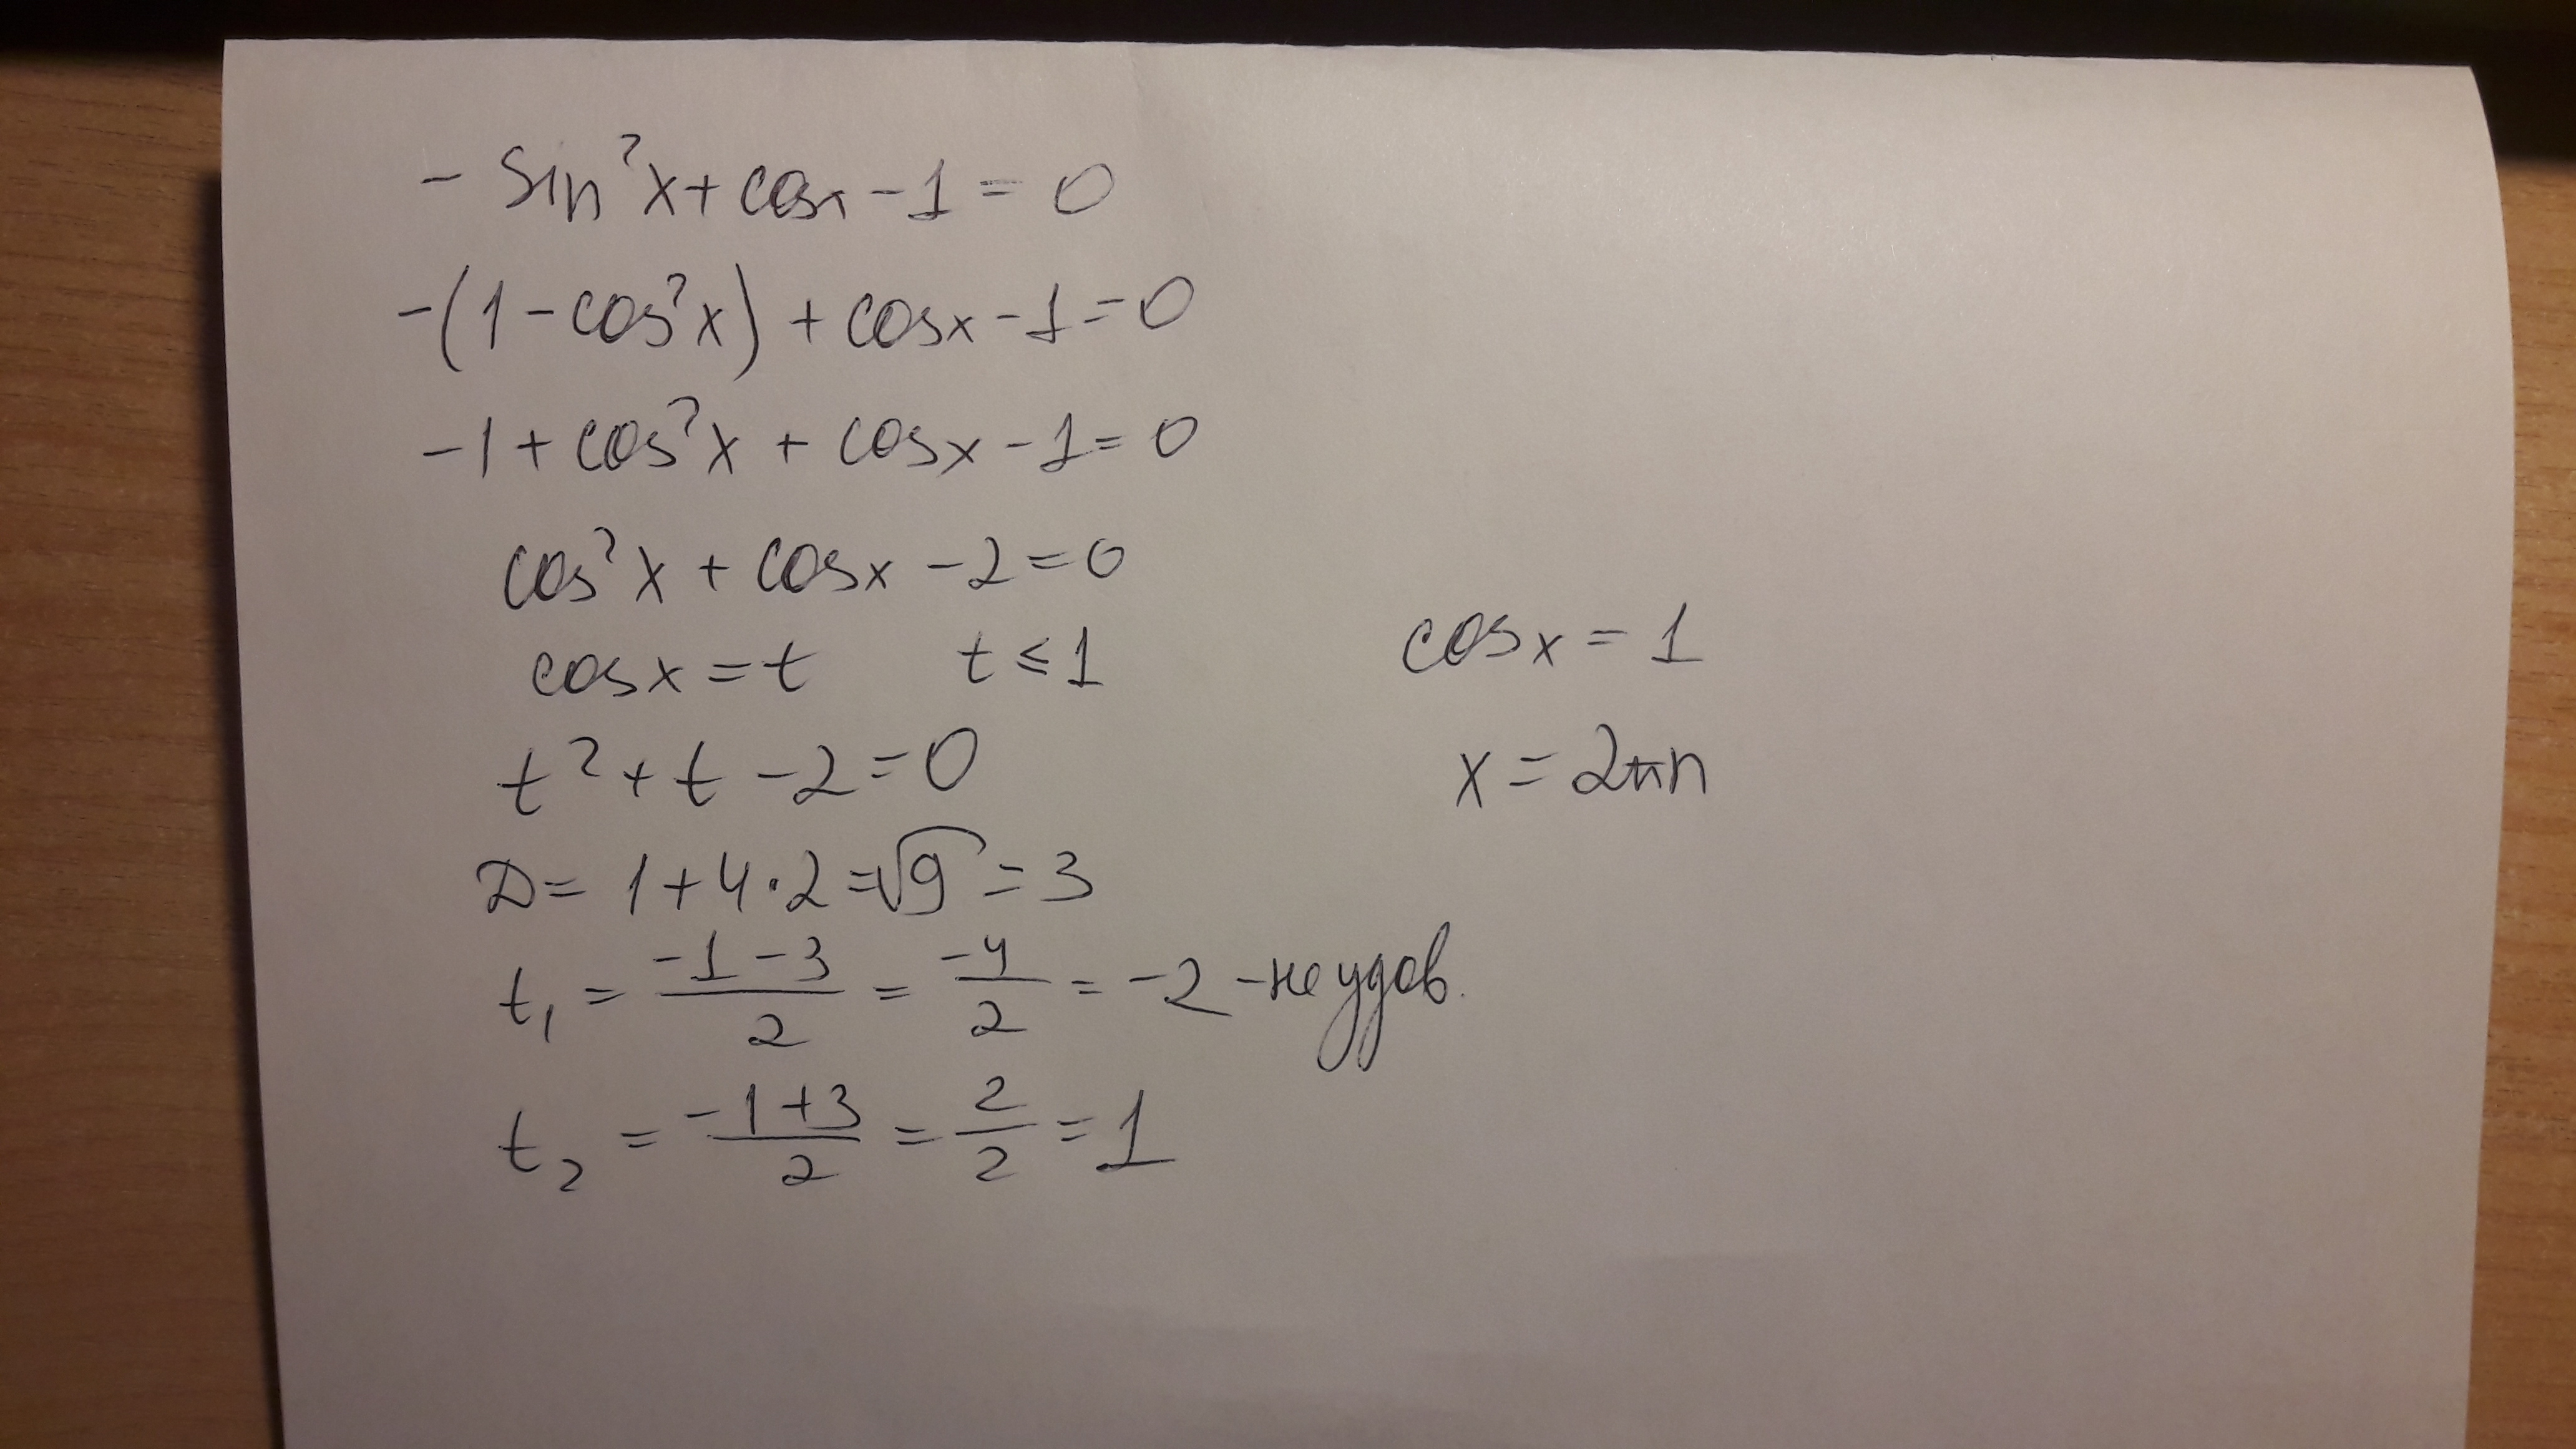 - sin²x + cosx - 1 = 0
-(1 - cos²x) + cosx - 1 = 0
-1 + cos²x + cosx - 1 = 0
cos²x + cosx - 2 = 0
cosx = t t ≤ 1
t² + t - 2 = 0
D = 1 + 4·2 = √9 = 3
t₁ = (-1 - 3)/2 = -4/2 = -2 - не удов.
t₂ = (-1 + 3)/2 = 2/2 = 1
cosx = 1
x = 2πn